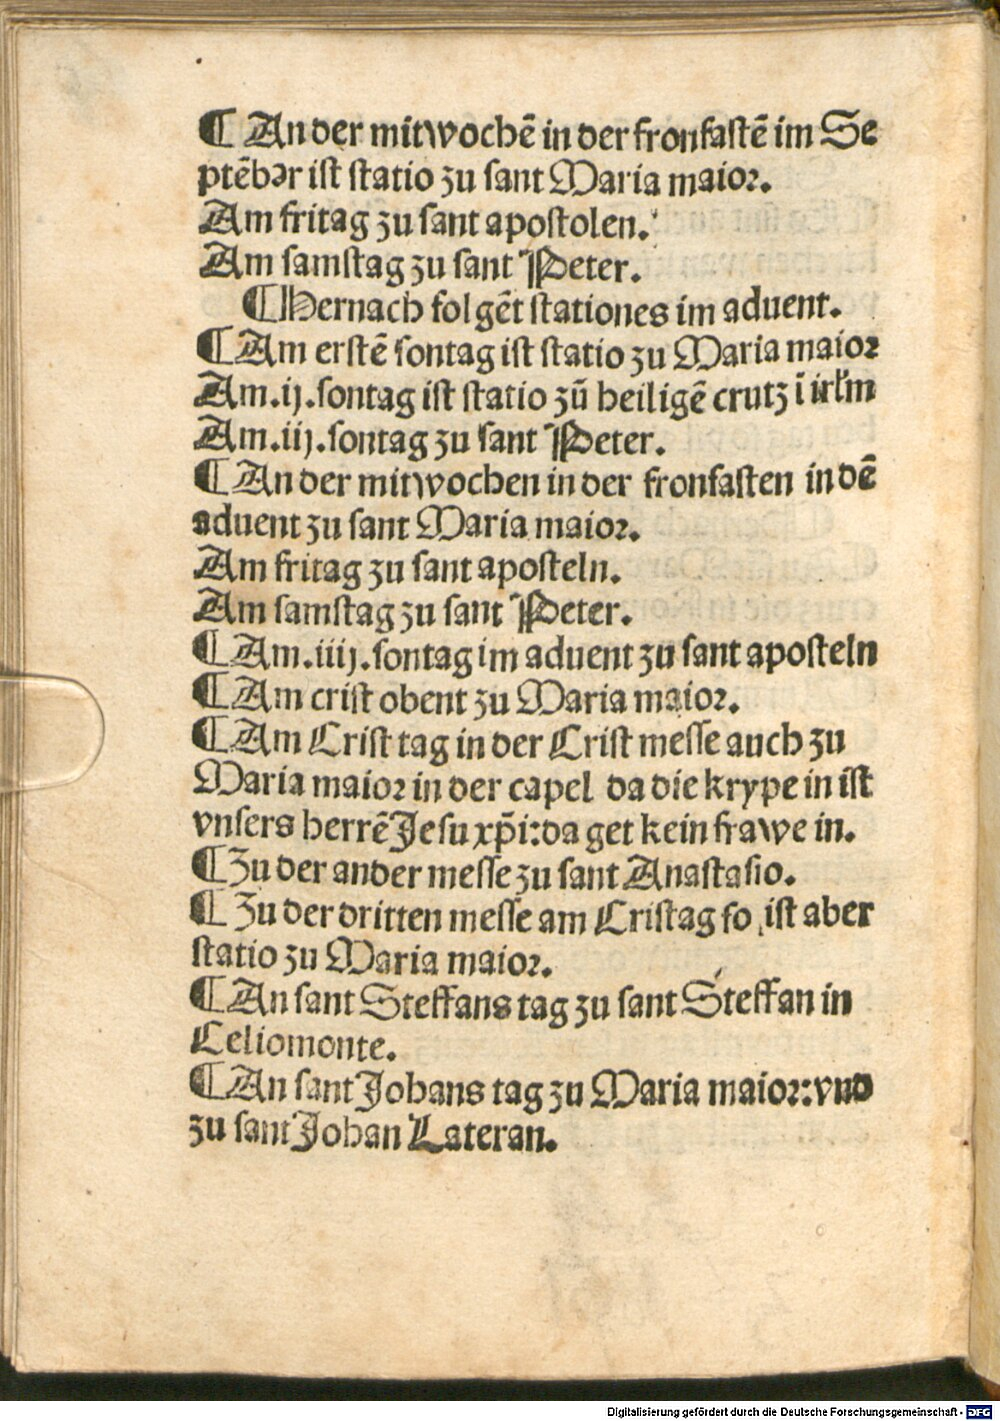 ¶ An der mitwochē in der fronfastē im Se
ptēber ist statio zu sant Maria maior.
Am fritag zu sant apostolen.
Am samstag zu sant Peter.
¶ Hernach folgēt stationes im aduent.
¶ Am erstē sontag ist statio zu Maria maior
Am .ij. sontag ist statio zū heiligē crutz ī irłm
Am .iij. sontag zu sant Peter.
¶ An der mitwochen in der fronfasten in dē
aduent zu sant Maria maior.
Am fritag zu sant aposteln.
Am samstag zu sant Peter.
¶ Am .iiij. sontag im aduent zu sant aposteln
¶ Am crist obent zu Maria maior.
¶ Am Crist tag in der Crist messe auch zu
Maria maior in der capel da die krype in ist
vnsers herrē Jesu xp̄i: da get kein frawe in.
¶ Zu der ander messe zu sant Anastasio.
¶ Zu der dritten messe am Cristag so ist aber
statio zu Maria maior.
¶ An sant Steffans tag zu sant Steffan in
Celiomonte.
¶ An sant Johans tag zu Maria maior: vnd
zu sant Johan Lateran.
Digitalisierung gefördert durch die Deutsche Forschungsgemeinschaft - DFG